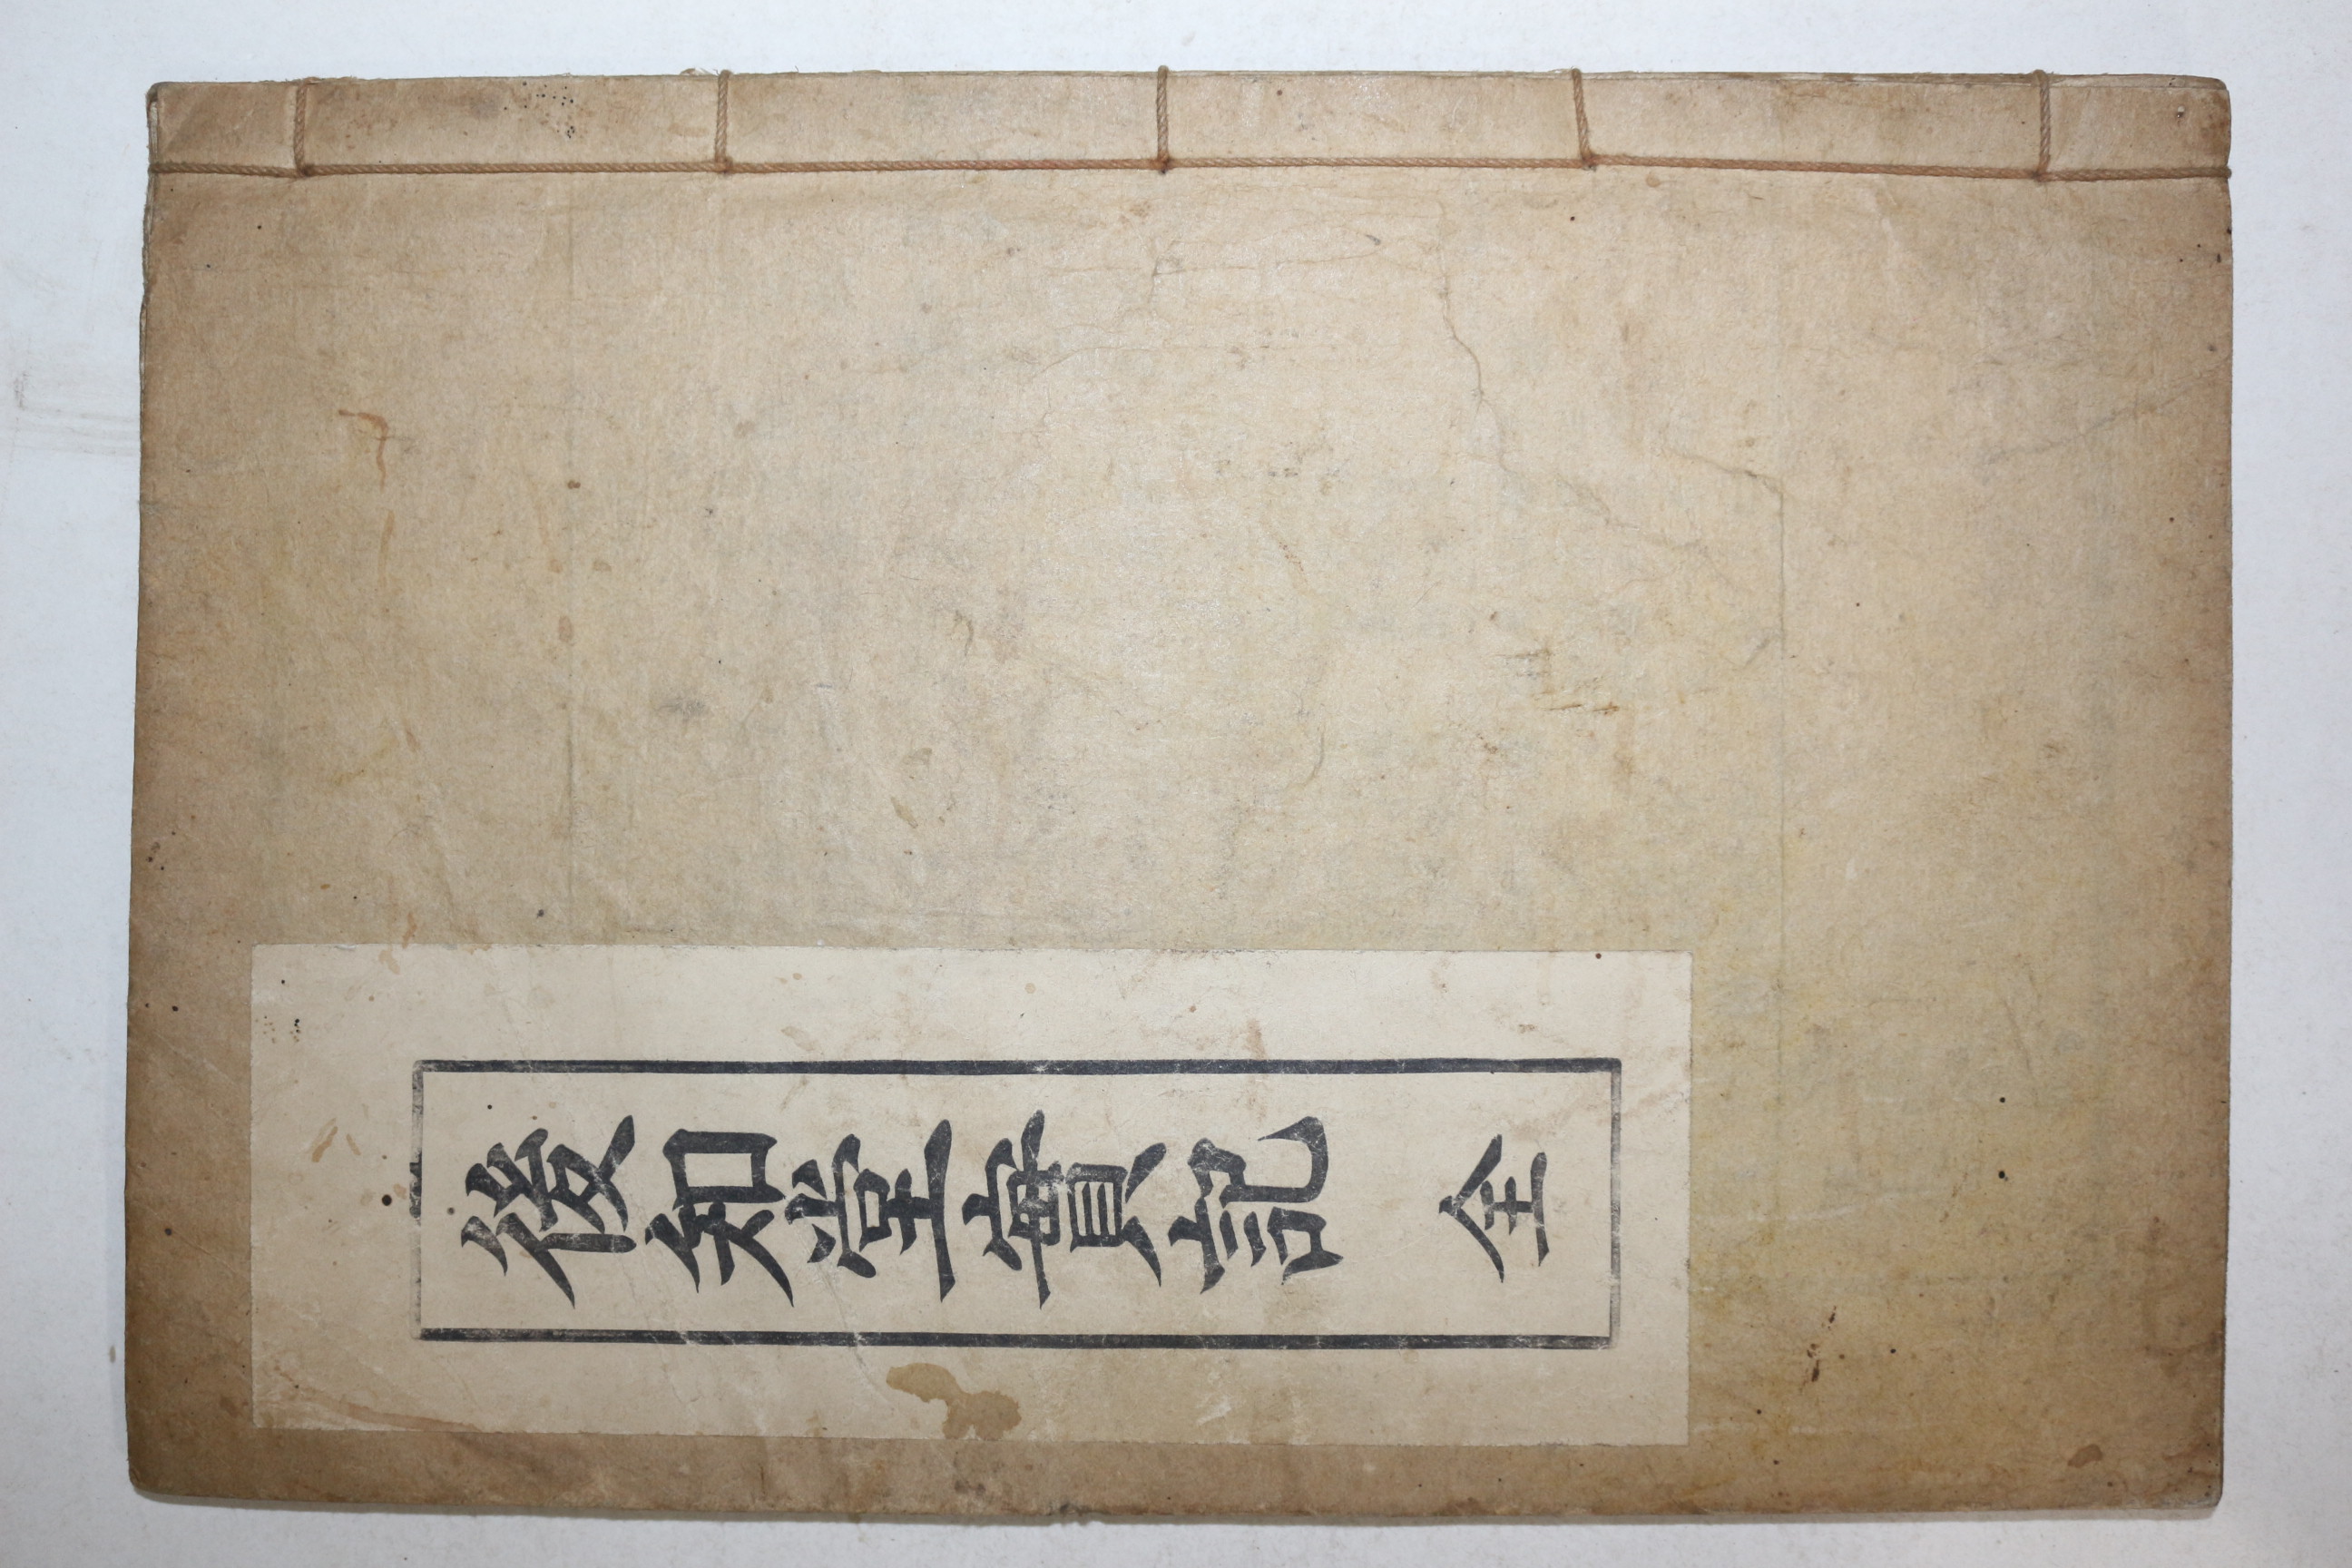 後知堂實記 全